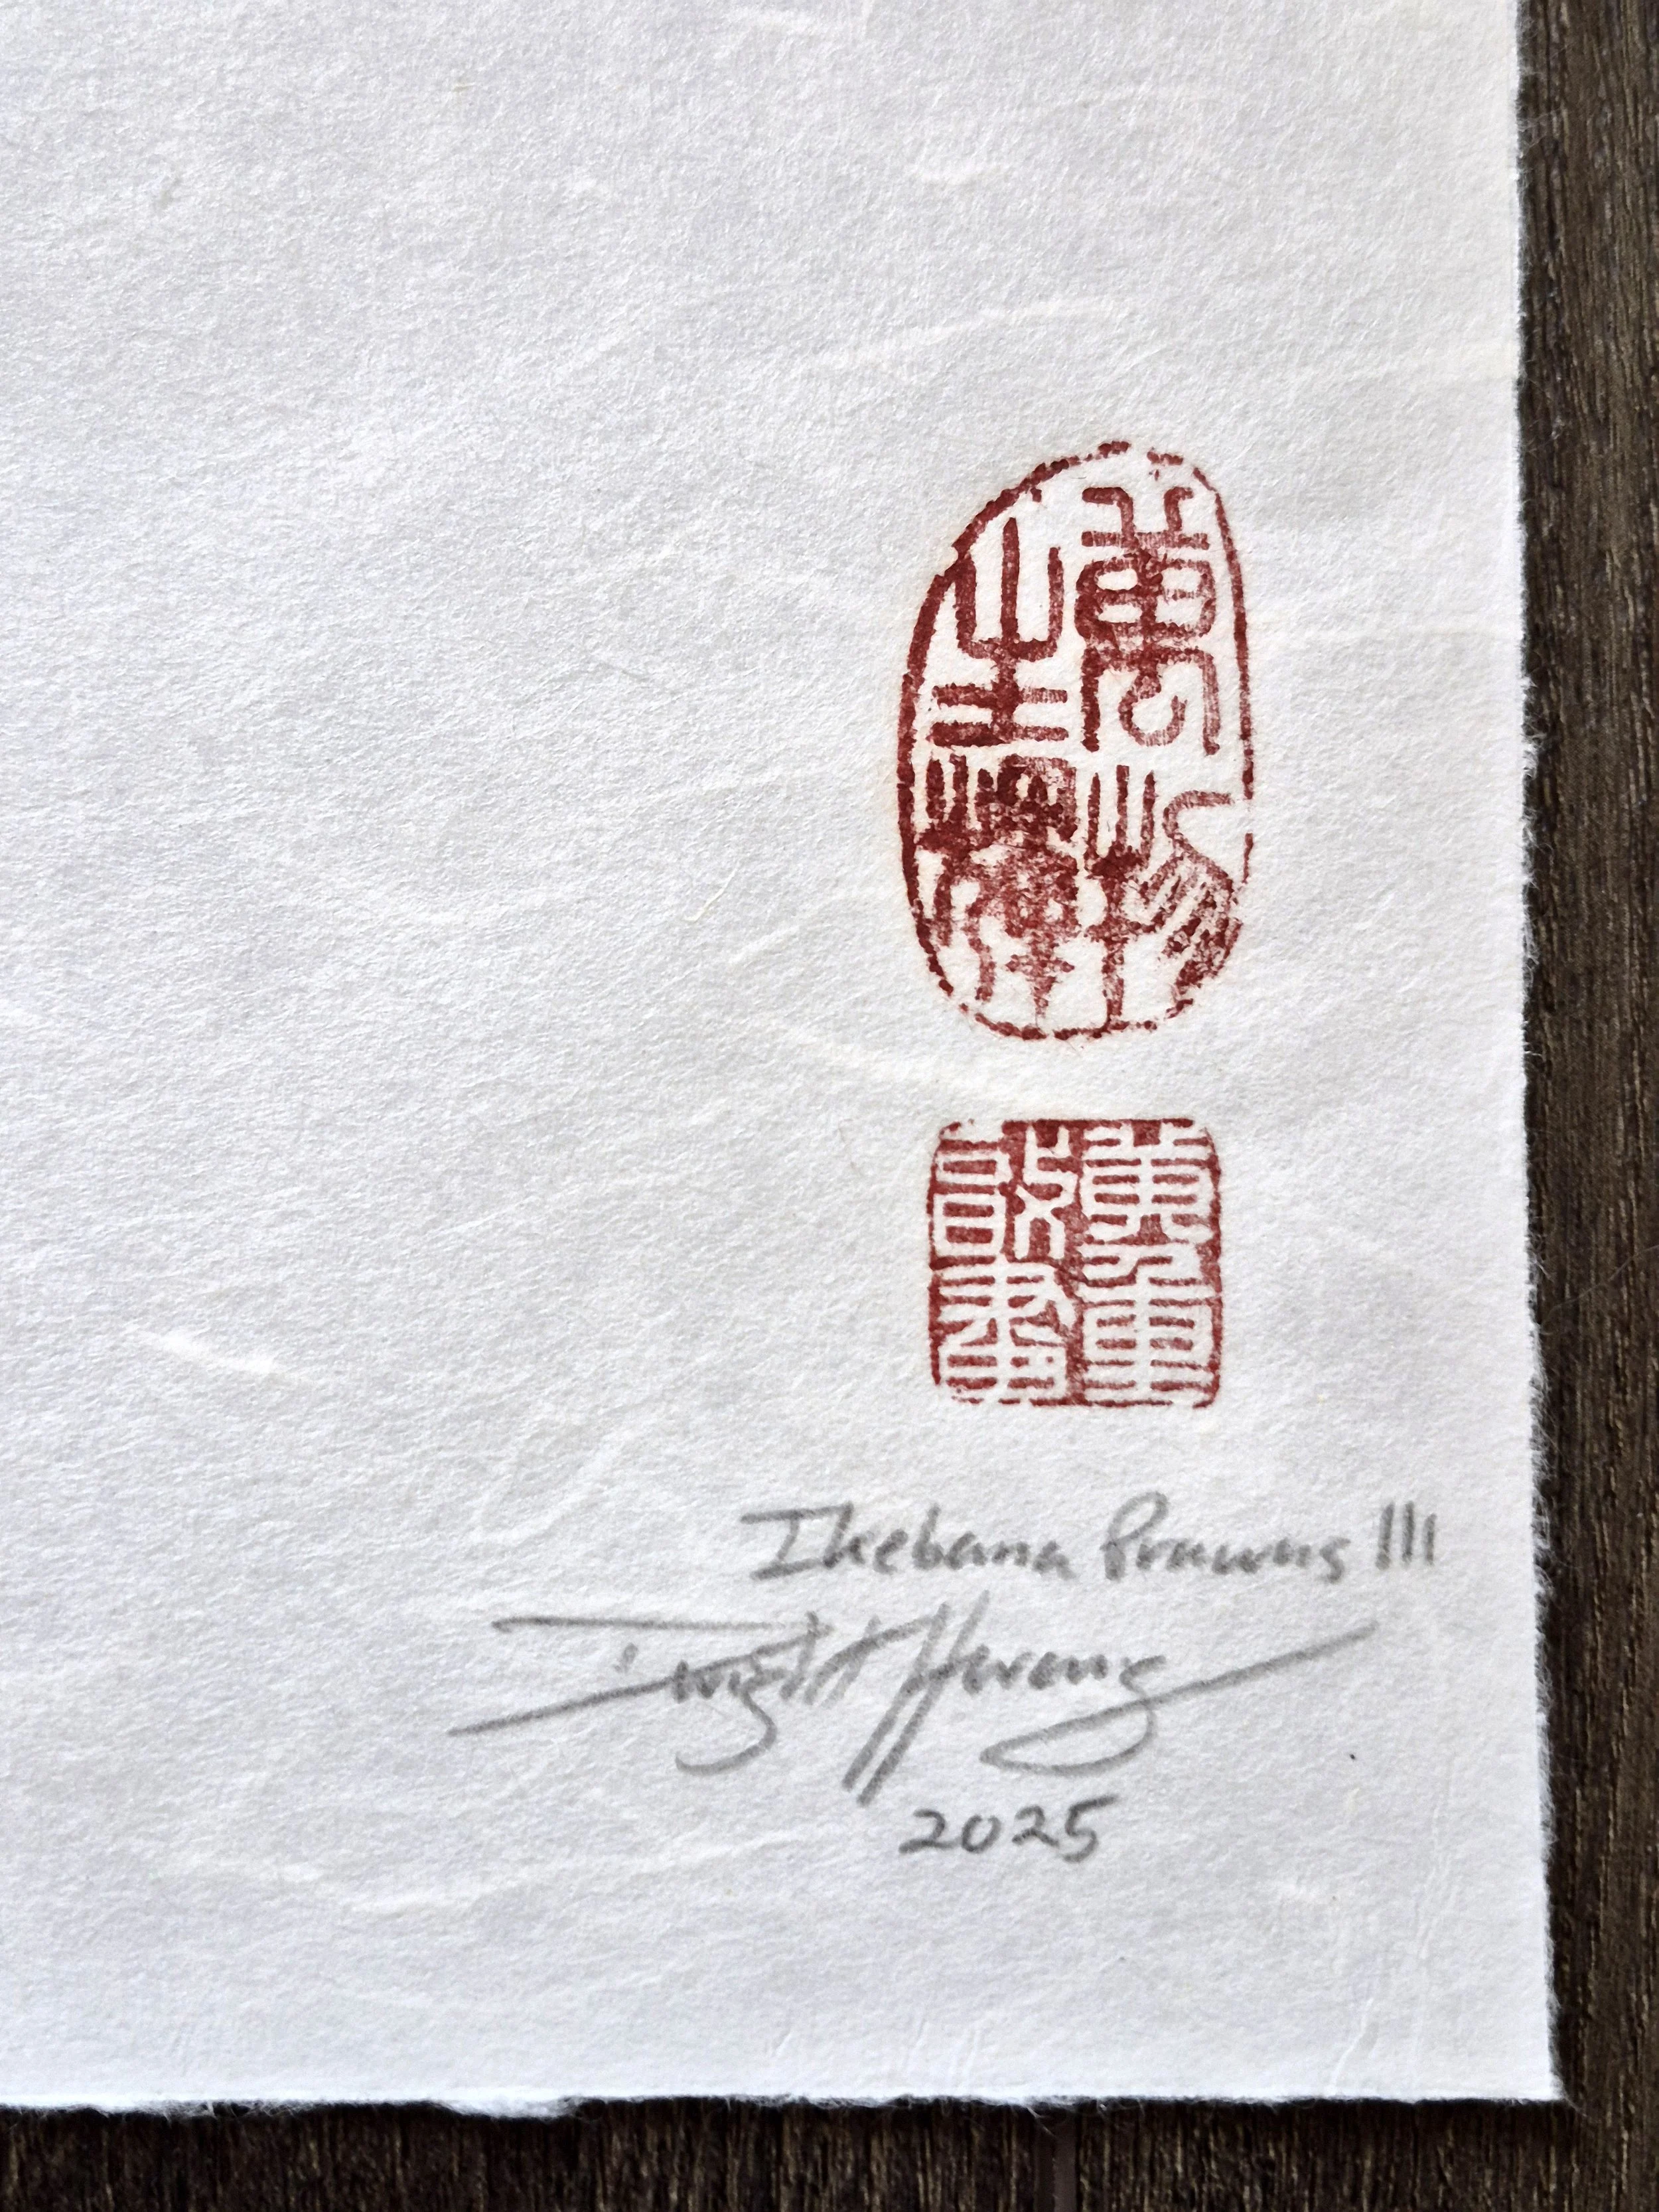 萬物
生輝
Ikebana Prawns III
Dwight Hwang
2025